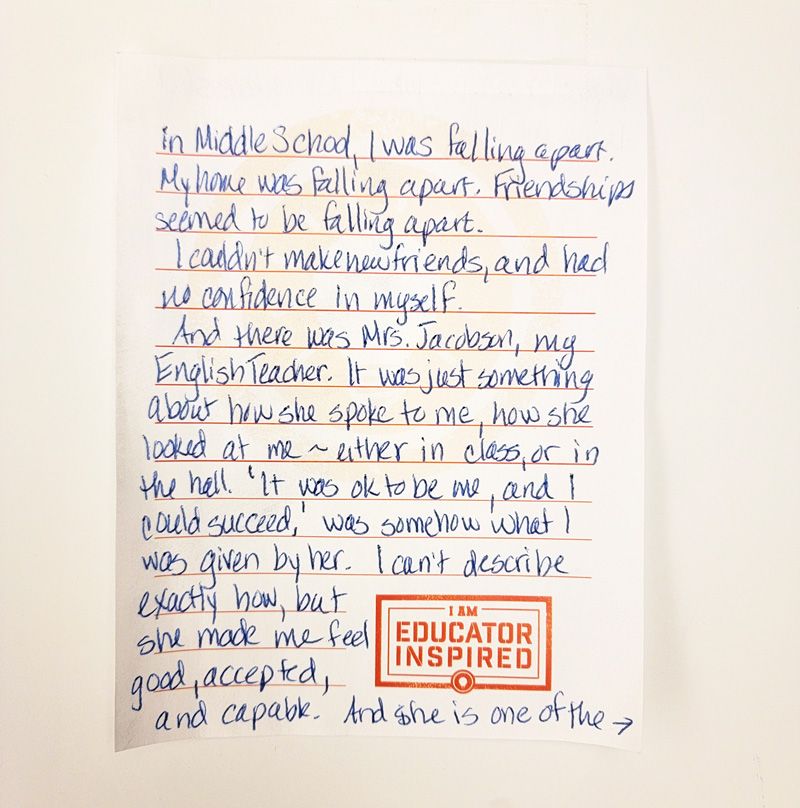 in Middle School, I was falling apart.
My home was falling apart. Friendships
seemed to be falling apart.
I couldn't make new friends, and had
no confidence in myself.
And there was Mrs. Jacobson, my
English Teacher. It was just something
about how she spoke to me, how she
looked at me ~ either in class, or in
the hall. 'It was ok to be me, and I
could succeed,' was somehow what I
was given by her. I can't describe
exactly how, but
she made me feel
good, accepted,
and capable. And she is one of the →
I AM
EDUCATOR
INSPIRED